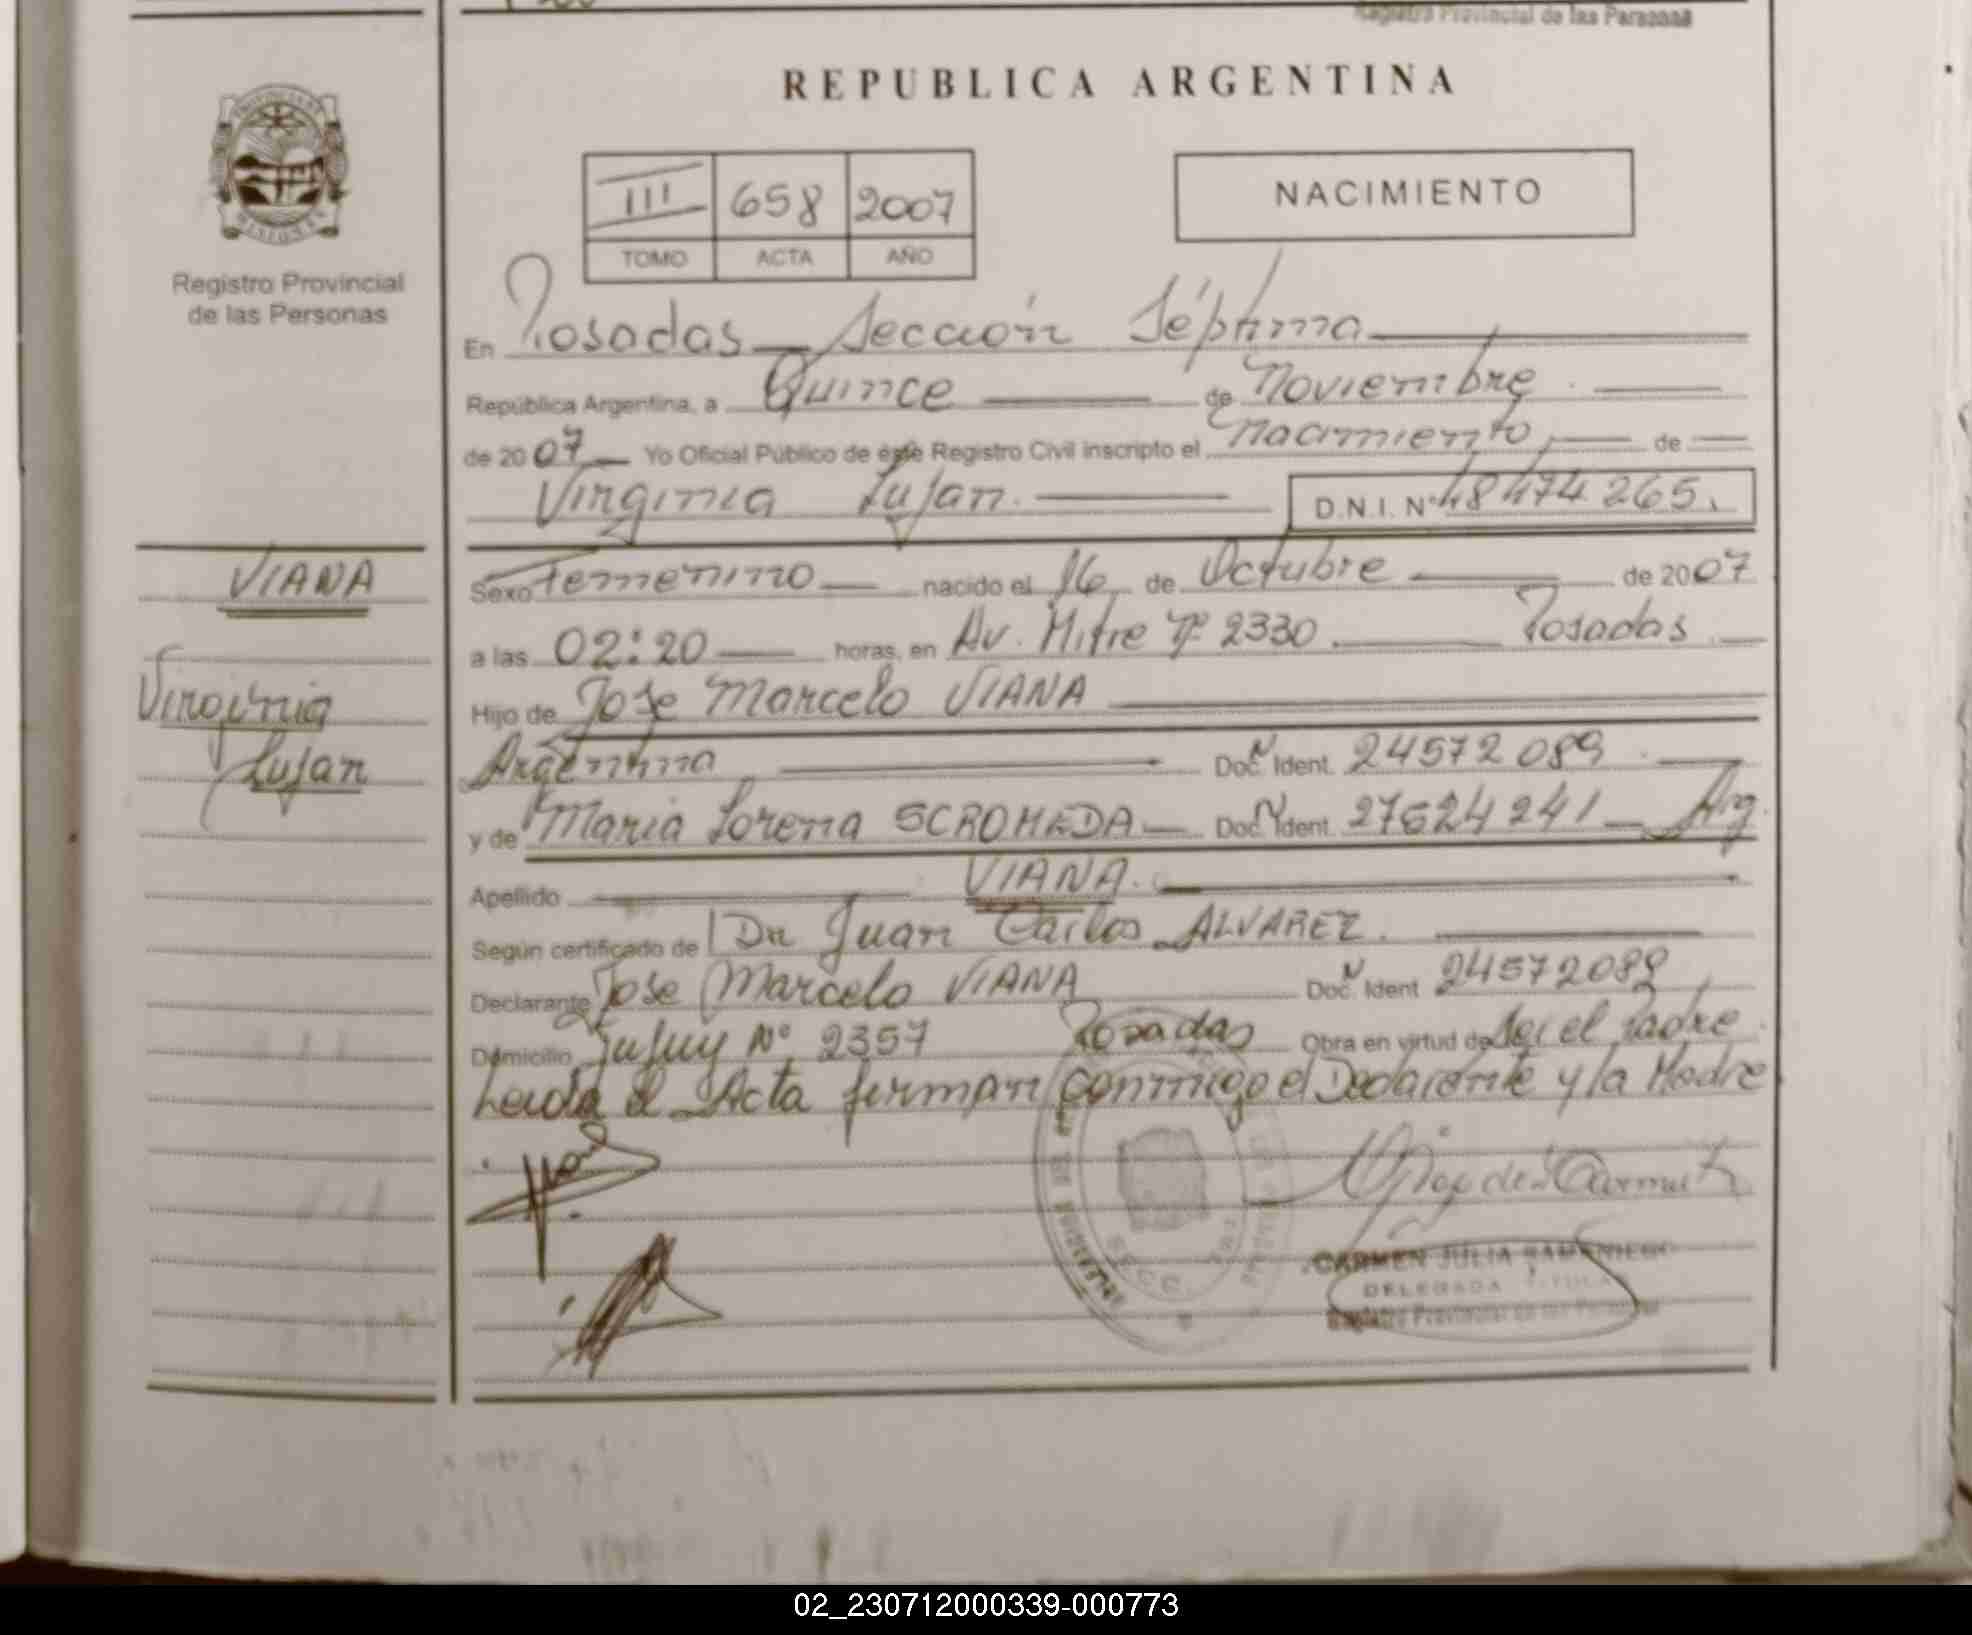 Registro Provincial de las Personas
REPUBLICA ARGENTINA
III 658 2007
TOMO ACTA AÑO
NACIMIENTO
Registro Provincial
de las Personas
En Posadas Sección Séptima
República Argentina, a Quince de Noviembre
de 2007 Yo Oficial Público de éste Registro Civil inscripto el Nacimiento, de
Virginia Lujan. D.N.I. Nº 48474265.
VIANA
Virginia
Lujan
Sexo Femenino nacido el 16 de Octubre de 2007
a las 02:20 horas, en Av. Mitre Nº 2330 Posadas
Hijo de Jose Marcelo VIANA
Argentina Doc. Nº Ident. 24572089
y de Maria Lorena SCROMEDA Doc. Nº Ident. 27624241 Arg.
Apellido VIANA.
Según certificado de Dr Juan Carlos ALVAREZ.
Declarante Jose Marcelo VIANA Doc. Nº Ident 24572089
Domicilio Jujuy Nº 2357 Posadas Obra en virtud de Ser el Padre
Leida el Acta firman conmigo el Declarante y la Madre
CARMEN JULIA SAMANIEGO
DELEGADA TITULAR
Registro Provincial de las Personas
02_230712000339-000773